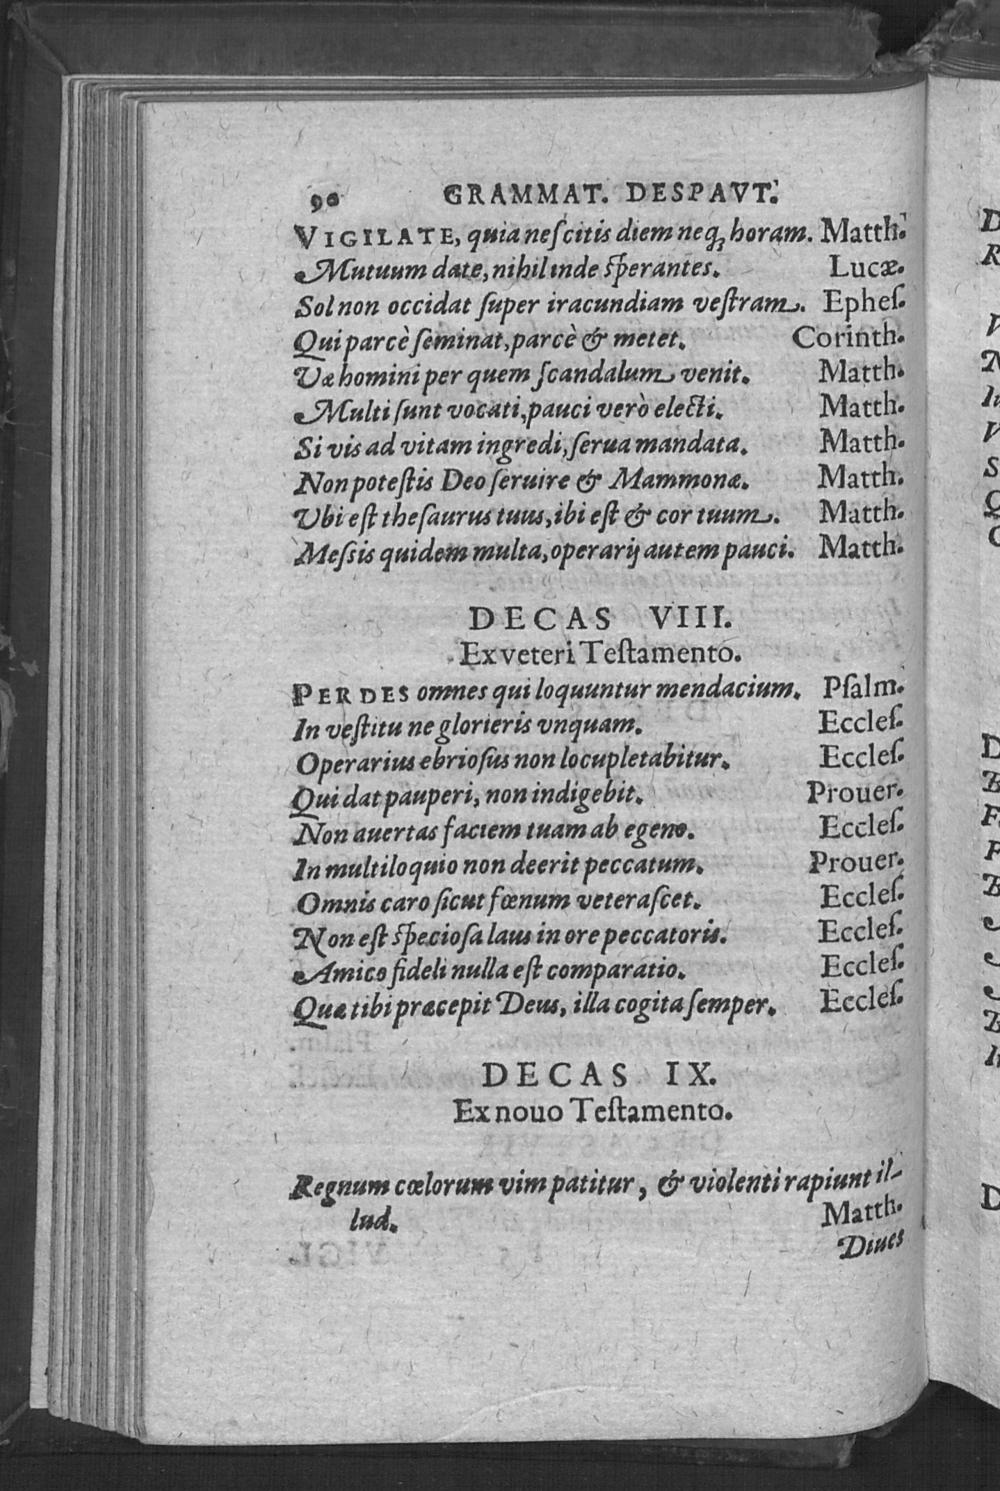 90 GRAMMAT. DESPAVT.
VIGILATE, quia nescitis diem neq; horam. Matth.
Mutuum date, nihil inde sperantes. Lucæ.
Sol non occidat super iracundiam vestram. Ephes.
Qui parcè seminat, parcè & metet. Corinth.
Væ homini per quem scandalum venit. Matth.
Multi sunt vocati, pauci verò electi. Matth.
Si vis ad vitam ingredi, serua mandata. Matth.
Non potestis Deo seruire & Mammonæ. Matth.
Vbi est thesaurus tuus, ibi est & cor tuum. Matth.
Messis quidem multa, operarij autem pauci. Matth.
DECAS VIII.
Ex veteri Testamento.
PERDES omnes qui loquuntur mendacium. Psalm.
In vestitu ne glorieris vnquam. Eccles.
Operarius ebriosus non locupletabitur. Eccles.
Qui dat pauperi, non indigebit. Prouer.
Non auertas faciem tuam ab egeno. Eccles.
In multiloquio non deerit peccatum. Prouer.
Omnis caro sicut fœnum veterascet. Eccles.
Non est speciosa laus in ore peccatoris. Eccles.
Amico fideli nulla est comparatio. Eccles.
Quæ tibi præcepit Deus, illa cogita semper. Eccles.
DECAS IX.
Ex nouo Testamento.
Regnum cœlorum vim patitur, & violenti rapiunt il-
lud. Matth.
Diues